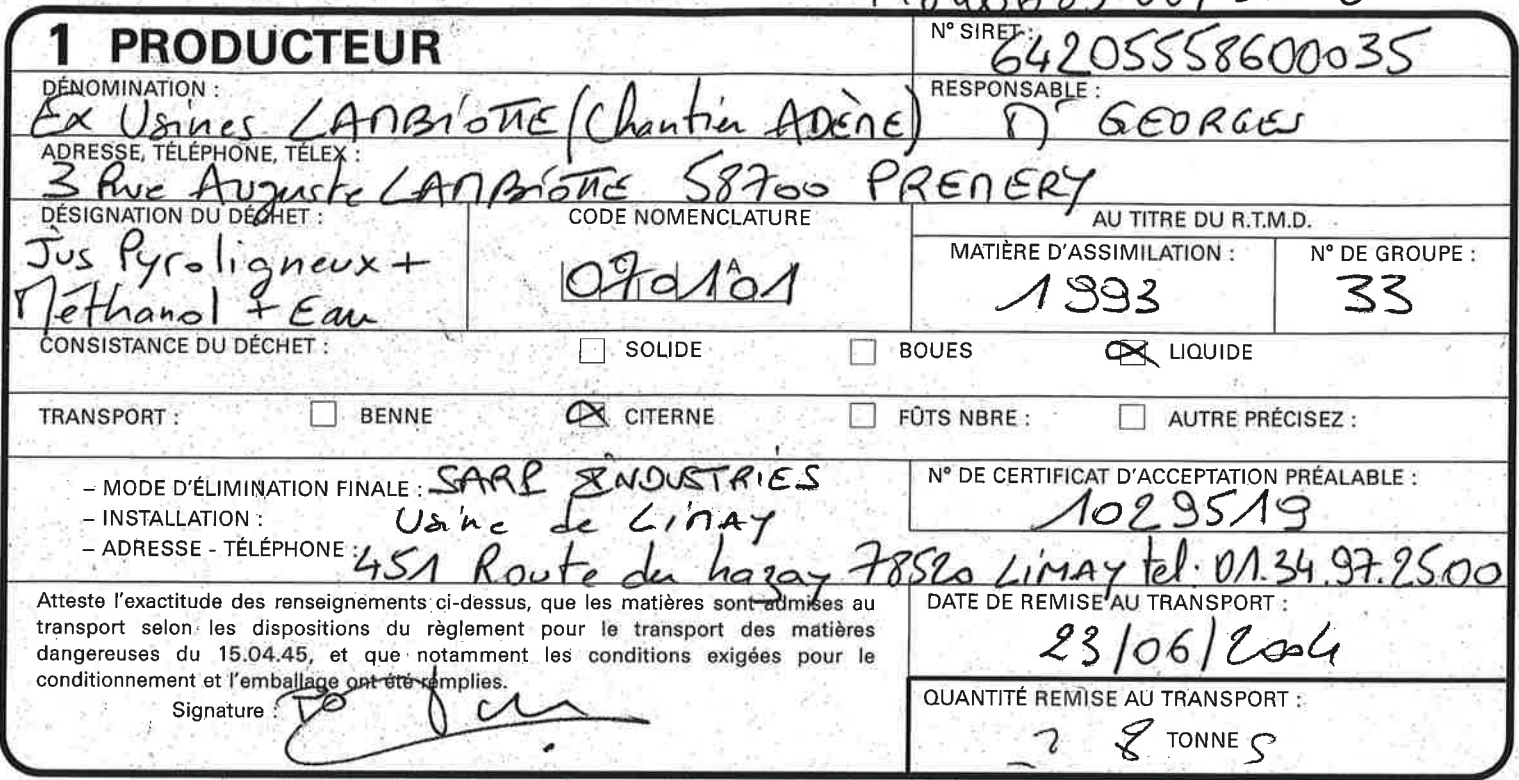 1 PRODUCTEUR
N° SIRET :
64205558600035
DÉNOMINATION :
Ex Usines LAMBIOTTE (Chantier ADÈME)
RESPONSABLE :
Mr GEORGES
ADRESSE, TÉLÉPHONE, TÉLEX :
3 Rue Auguste LAMBIOTTE 58700 PREMERY
DÉSIGNATION DU DÉCHET :
Jus Pyroligneux +
Méthanol + Eau
CODE NOMENCLATURE
C A
070101
AU TITRE DU R.T.M.D.
MATIÈRE D'ASSIMILATION :
1993
N° DE GROUPE :
33
CONSISTANCE DU DÉCHET :
SOLIDE
BOUES
LIQUIDE
TRANSPORT :
BENNE
CITERNE
FÛTS NBRE :
AUTRE PRÉCISEZ :
– MODE D'ÉLIMINATION FINALE : SARP INDUSTRIES
– INSTALLATION : Usine de LIMAY
– ADRESSE - TÉLÉPHONE : 451 Route du hazay 78520 LIMAY tel. 01.34.97.25.00
N° DE CERTIFICAT D'ACCEPTATION PRÉALABLE :
1029519
Atteste l'exactitude des renseignements ci-dessus, que les matières sont admises au
transport selon les dispositions du règlement pour le transport des matières
dangereuses du 15.04.45, et que notamment les conditions exigées pour le
conditionnement et l'emballage ont été remplies.
Signature :
DATE DE REMISE AU TRANSPORT :
23/06/2004
QUANTITÉ REMISE AU TRANSPORT :
8 TONNES